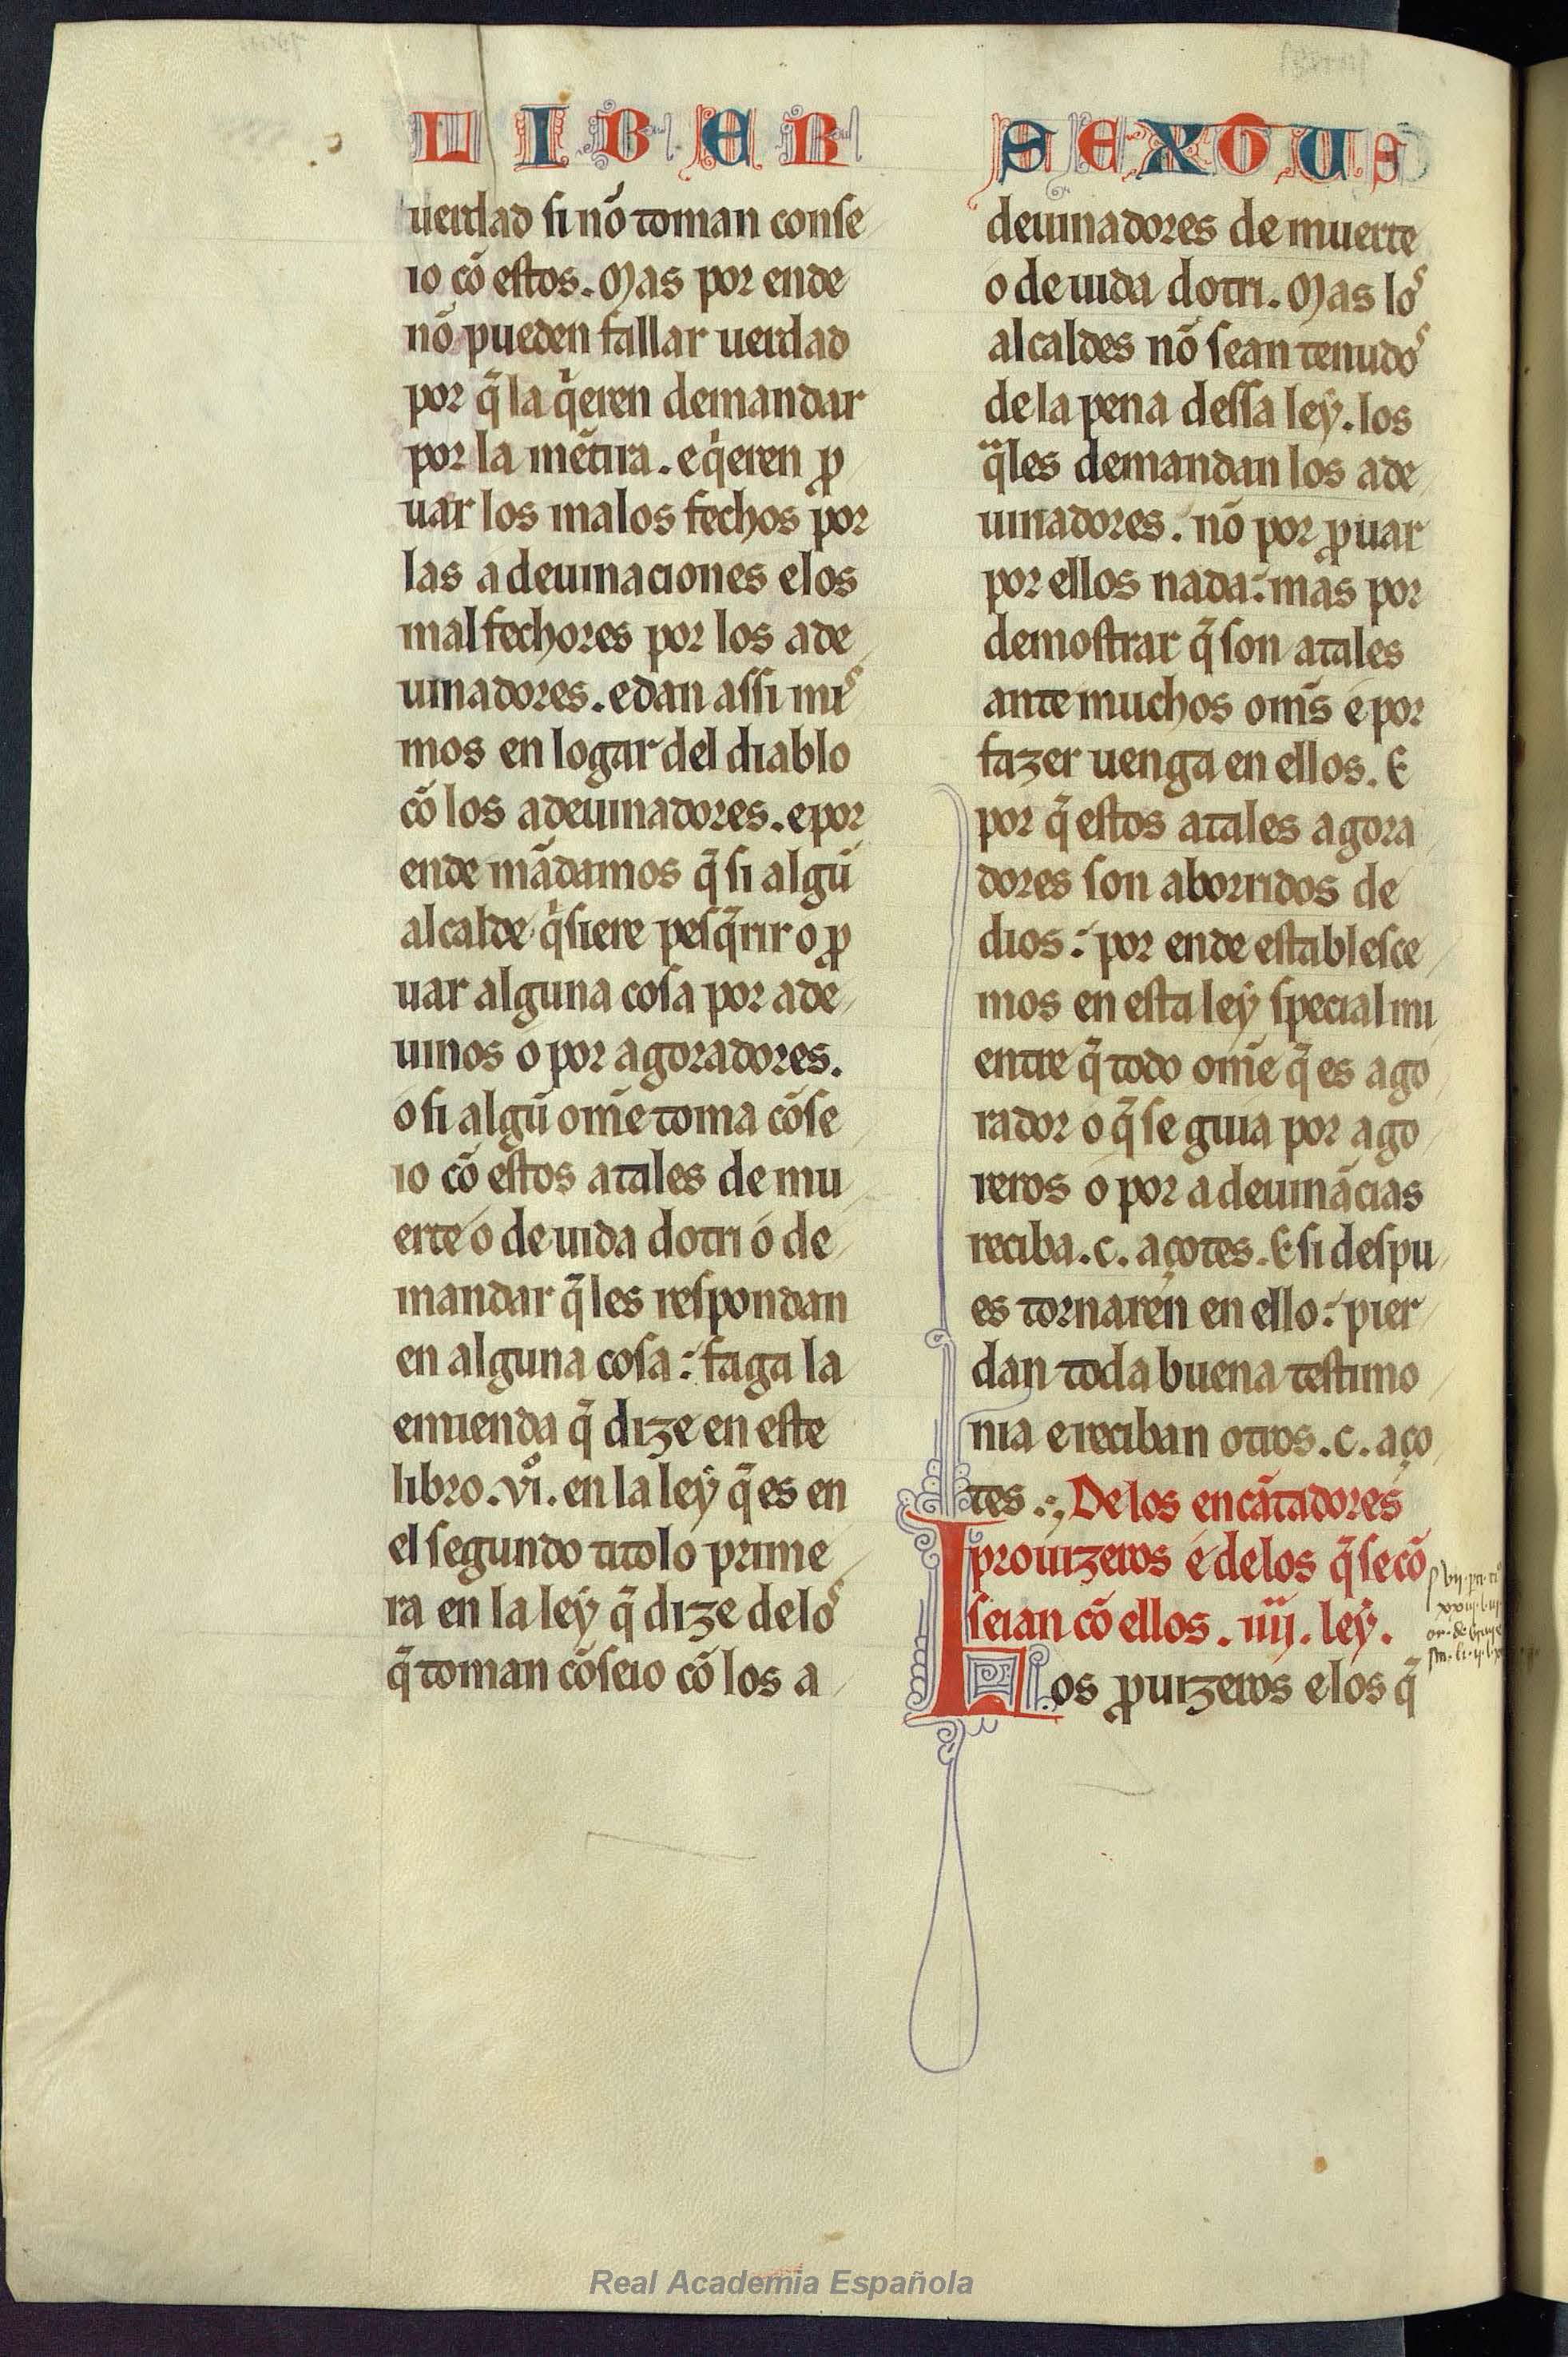 LIBER
uerdad si nõ toman conse
io cõ estos. Mas por ende
nõ pueden fallar uerdad
por q̃ la q̇eren demandar
por la mẽtira. e q̇eren ꝓ
uar los malos fechos por
las adeuinaciones e los
malfechores por los ade
uinadores. e dan assi miˢ
mos en logar del diablo
cõ los adeuinadores. e por
ende mãdamos q̃ si algũ
alcalde q̇siere pesq̃rir o ꝓ
uar alguna cosa por ade
uinos o por agoradores.
o si algũ om̃e toma cõse
io cõ estos atales de mu
erte o de uida dotri o de
mandar q̃ les respondan
en alguna cosa: faga la
emienda q̃ dize en este
libro .vi.º en la ley q̃ es en
el segundo titolo prime
ra en la ley q̃ dize de loˢ
q̃ toman cõseio cõ los a
SEXTUS
deuinadores de muerte
o de uida dotri. Mas loˢ
alcaldes nõ sean tenudoˢ
de la pena dessa ley. los
q̃les demandan los ade
uinadores. nõ por ꝓuar
por ellos nada: mas por
demostrar q̃ son atales
ante muchos om̃s e por
fazer uenga en ellos. E
por q̃ estos atales agora
dores son aborridos de
dios: por ende establesce
mos en esta ley special mi
entre q̃ todo om̃e q̃ es ago
rador o q̃ se guia por ago
reros o por adeuinãcias
reciba .c. açotes. E si despu
es tornaren en ello: pier
dan toda buena testimo
nia e reciban otros .c. aço
tes. De los encãtadores
prouizeros e de los q̃ se cõ
seian cõ ellos. iiij. ley.
Los ꝓuizeros e los q̃
Real Academia Española